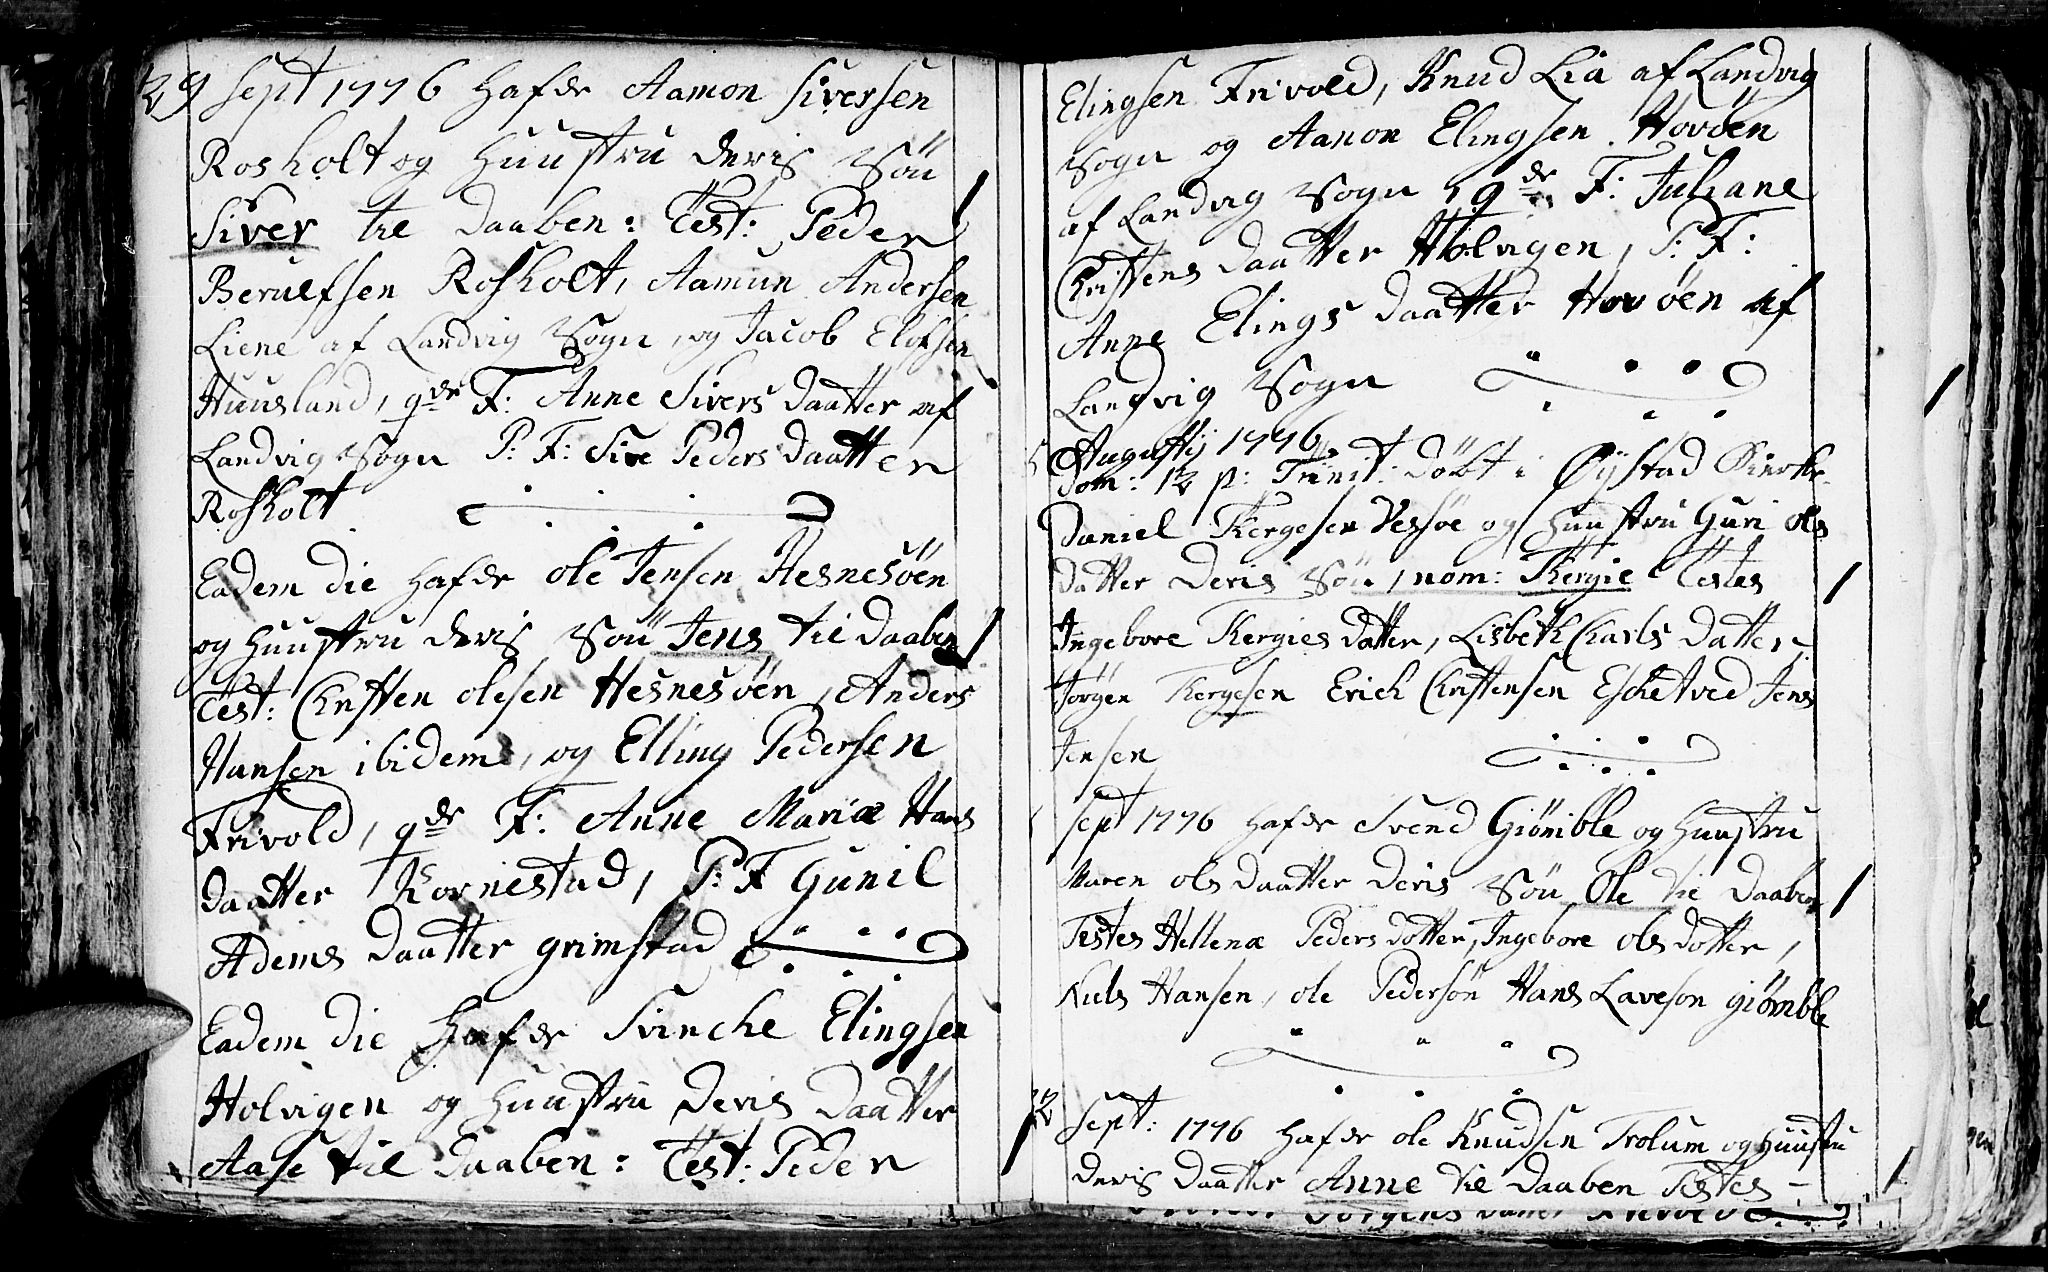 29 Sept 1776 Hafde Aamon Siversen
Rosholt og Huustru deris Søn
Siver til Daaben: Test: Peder
Beruelfsen Rosholt, Aamun Andersen
Liene af Landvig Sogn, og Jacob Elofsen
Huusland, gde F: Anne Sivers Daatter af
Landvig Sogn P: F: Sire Peders Daatter
Rosholt
Eadem die Hafde Ole Jensen Hesnesøen
og Huustru deris Søn Jens til Daaben
Test: Christen Olesen Hesnesøen, Anders
Hansen ibidem, og Elling Pedersen
Frivold, gde F: Anne Mariæ Hans
Daatter Kornestad, P: F Gunil
Adems Daatter grimstad
Eadem die Hafde Svinche Elingsen
Holvigen og Huustru Deris Daatter
Aase til Daaben: Test: Peder
Elingsen Frivold, Knud Lia af Landvig
Sogn og Aanon Elingsen Hovøen
af Landvig Sogn, gde F: Juliane
Christens Daatter Holvigen, P: F:
Anne Elings Daatter Hovøen af
Landvig Sogn
Augustij 1776
Dom: 12 p: Trinit: Døbt i Øijstad Kirke
Daniel Tergesen Vessøe og Huustru Guri Ols
Datter Deris Søn, nom: Tergie Testes
Ingebore Tergies Datter, Lisbeth Charls Datter
Jørgen Tergesen Erich Christensen Eschetved Jens
Jensen
Sept 1776 Hafde Svend Giømble og Huustru
Maren Ols Daatter Deris Søn Ole til Daaben
Testes Hellenæ Peders Dotter, Ingebore Ols Dotter,
Niels Hansen, Ole Pedersøn Hans Laveson Giømble
12 Sept: 1776 Hafde Ole Knudsen Trolum og Huustru
Deris Daatter Anne til Daaben Testes